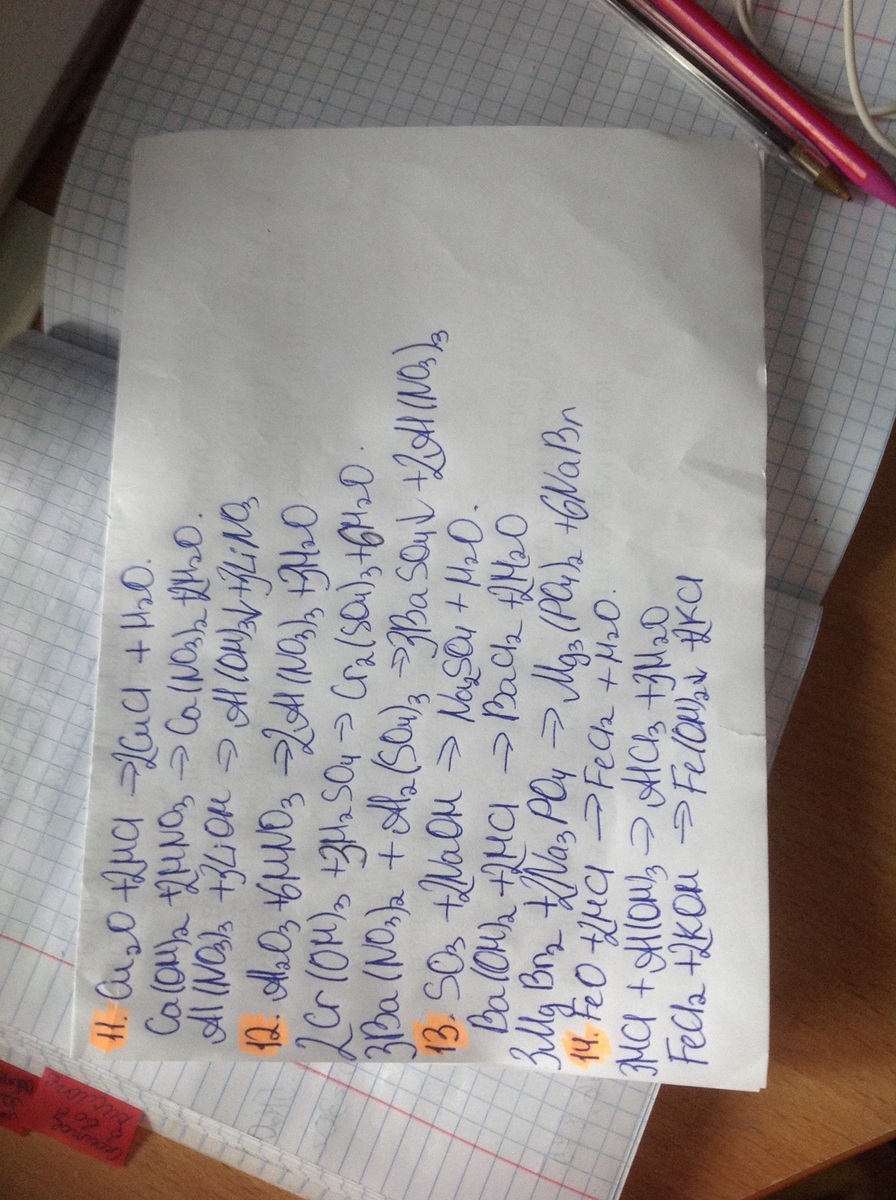 11. Cu₂O + 2HCl ⇒ 2CuCl + H₂O.
Ca(OH)₂ + 2HNO₃ ⇒ Ca(NO₃)₂ + 2H₂O.
Al(NO₃)₃ + 3LiOH ⇒ Al(OH)₃↓ + 3LiNO₃
12. Al₂O₃ + 6HNO₃ ⇒ 2Al(NO₃)₃ + 3H₂O
2Cr(OH)₃ + 3H₂SO₄ ⇒ Cr₂(SO₄)₃ + 6H₂O.
3Ba(NO₃)₂ + Al₂(SO₄)₃ ⇒ 3BaSO₄↓ + 2Al(NO₃)₃
13. SO₃ + 2NaOH ⇒ Na₂SO₄ + H₂O.
Ba(OH)₂ + 2HCl ⇒ BaCl₂ + 2H₂O
3MgBr₂ + 2Na₃PO₄ ⇒ Mg₃(PO₄)₂ + 6NaBr
14. FeO + 2HCl ⇒ FeCl₂ + H₂O.
3HCl + Al(OH)₃ ⇒ AlCl₃ + 3H₂O
FeCl₂ + 2KOH ⇒ Fe(OH)₂↓ + 2KCl